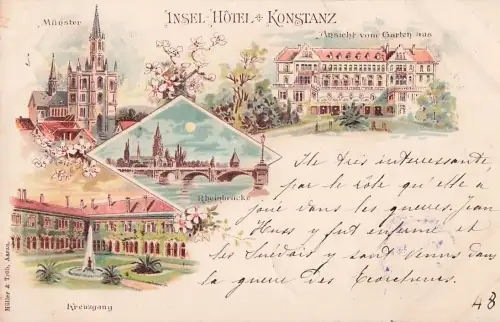 INSEL-HÔTEL KONSTANZ
Münster
Ansicht vom Garten aus
Rheinbrücke
Kreuzgang
Müller & Trüb, Aarau.
Ile très interessante
par le rôle qu'elle a
joué dans les guerres. Jean
Huss y fut enfermé et
les Suédois y sont venus dans
la guerre des
48